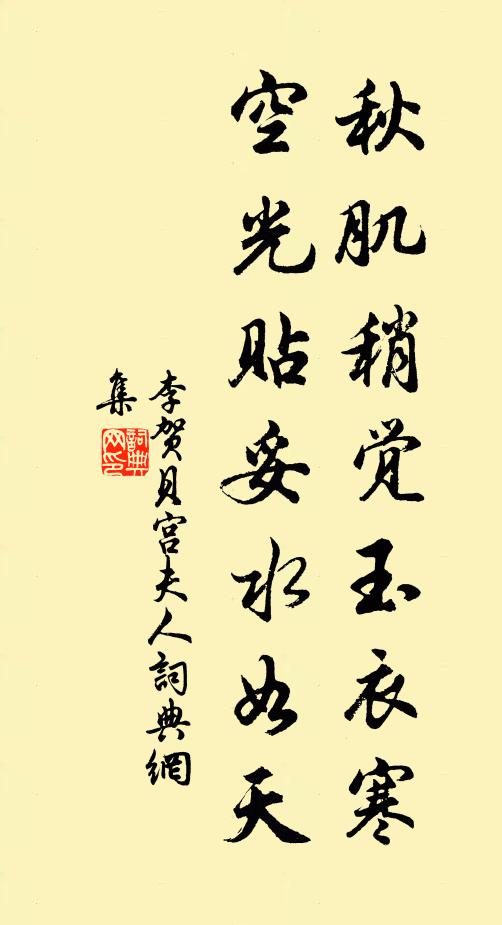 秋肌稍觉玉衣寒
空光贴妥水如天
李贺贝宫夫人詞典網
集
詞典网印